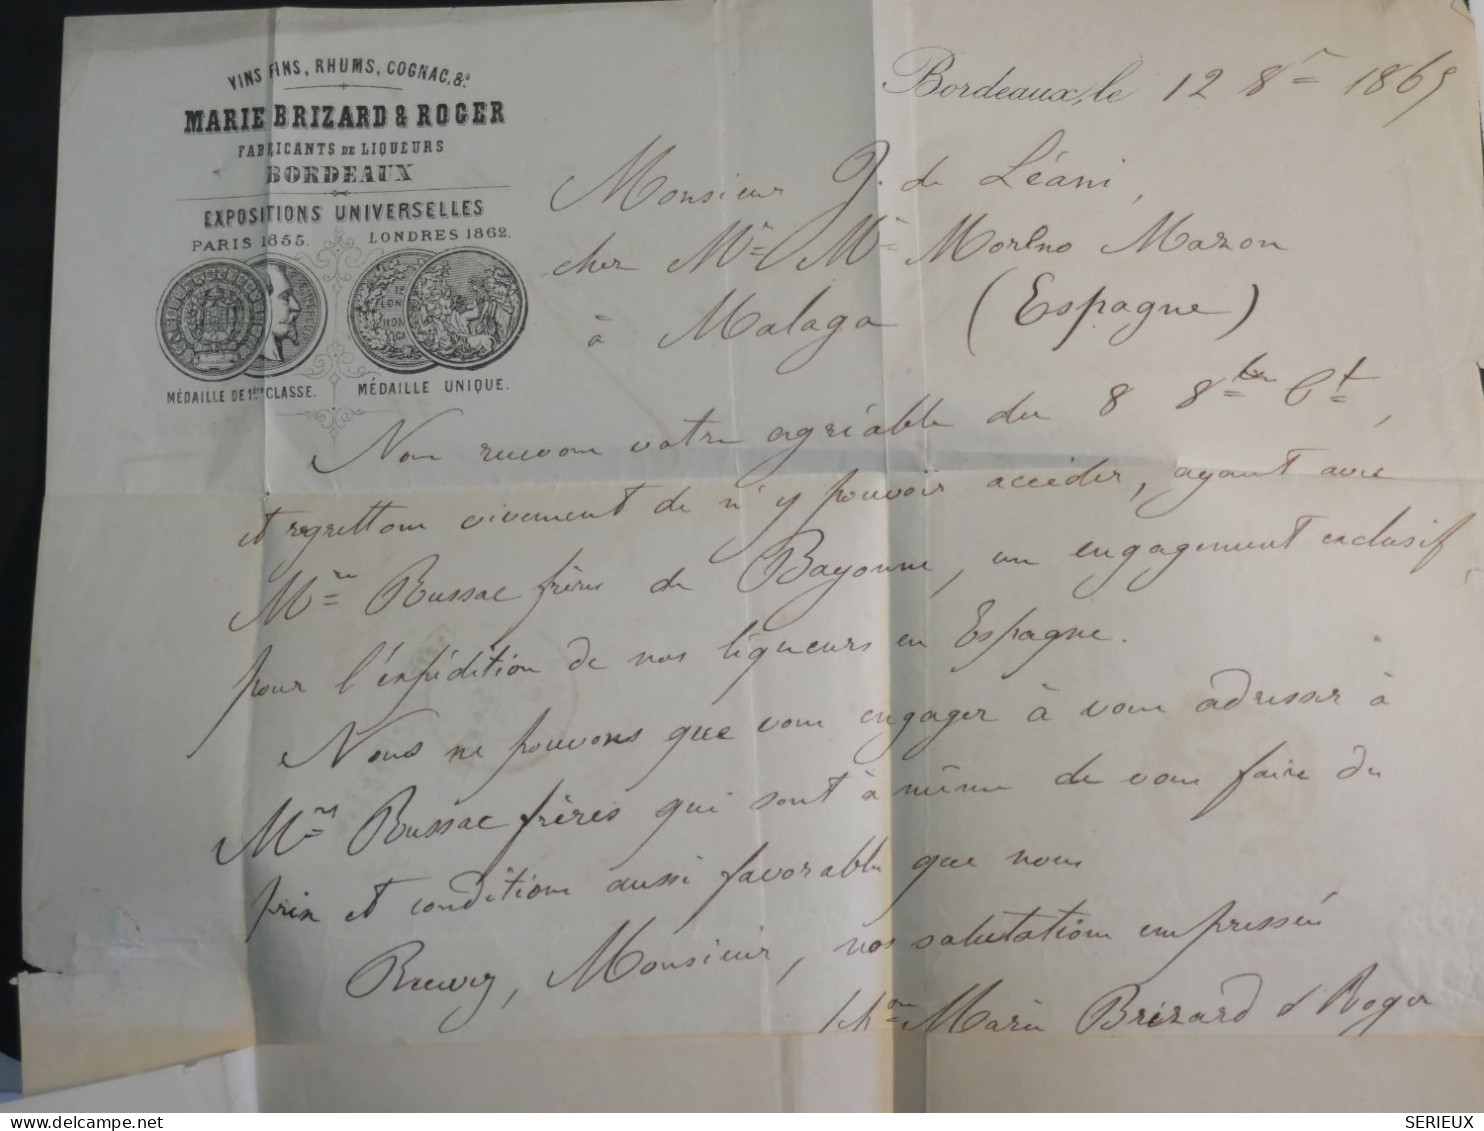 VINS FINS, RHUMS, COGNAC, &a
MARIE BRIZARD & ROGER
FABRICANTS DE LIQUEURS
BORDEAUX
EXPOSITIONS UNIVERSELLES
PARIS 1855. LONDRES 1862.
MÉDAILLE DE 1ère CLASSE. MÉDAILLE UNIQUE.
Bordeaux, le 12 8re 1865
Monsieur J. de Léani,
chez Mrs Moreno Mazon
à Malaga (Espagne)
Nous recevons votre agréable du 8 8bre Ct,
et regrettons vivement de n'y pouvoir accéder, ayant avec
Mrs Russac frères de Bayonne, un engagement exclusif
pour l'expédition de nos liqueurs en Espagne.
Nous ne pouvons que vous engager à vous adresser à
Mrs Russac frères qui sont à même de vous faire du
prix et conditions aussi favorables que nous
Recevez, Monsieur, nos salutations empressées
Marie Brizard & Roger
SERIEUX